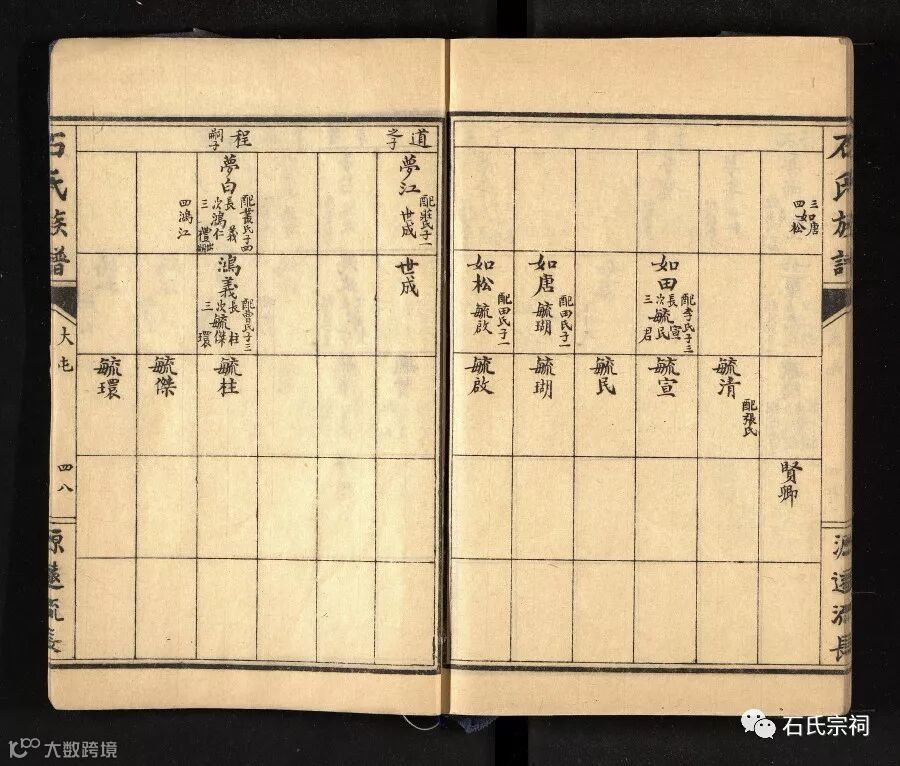 石氏族譜
源遠流長
三如唐
四如松
毓清
配張氏
賢卿
如田
配李氏子三
長宣
次毓民
三君
毓宣
毓民
如唐
配田氏子一
毓瑚
毓瑚
如松
配田氏子一
毓啟
毓啟
道之子
夢江
配莊氏子一
世成
世成
程嗣子
夢白
配黃氏子四
長義
次鴻仁
三禮
四鴻江
鴻義
配曹氏子三
長柱
次毓傑
三環
毓柱
毓傑
毓環
石氏族譜
大屯
四八
源遠流長
石氏宗祠
大数跨境